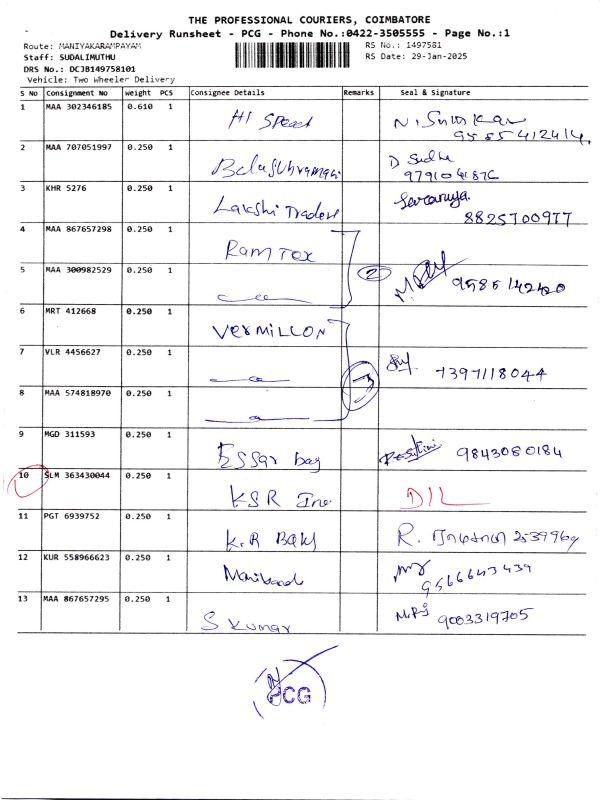 THE PROFESSIONAL COURIERS, COIMBATORE
Delivery Runsheet - PCG - Phone No.:0422-3505555 - Page No.:1
Route: MANIYAKARAMPAYAM RS No.: 1497581
Staff: SUDALIMUTHU RS Date: 29-Jan-2025
DRS No.: DCJB149758101
Vehicle: Two Wheeler Delivery
S No Consignment No Weight PCS Consignee Details Remarks Seal & Signature
1 MAA 302346185 0.610 1 HI Speed
9555412414
2 MAA 707051997 0.250 1 D Sudha
9791041876
3 KHR 5276 0.250 1 Lakshi Traders Saranya.
8825700977
4 MAA 867657298 0.250 1 RAM TEX
5 MAA 300982529 0.250 1 2 9585142420
6 MRT 412668 0.250 1 VERMILLON
7 VLR 4456627 0.250 1 3 7397118044
8 MAA 574818970 0.250 1
9 MGD 311593 0.250 1 Essar bag 9843080184
10 SLM 363430044 0.250 1 KSR Inc DIL
11 PGT 6939752 0.250 1 K.R Baks R.
12 KUR 558966623 0.250 1 9566643439
13 MAA 867657295 0.250 1 S Kumar 9003319705
PCG